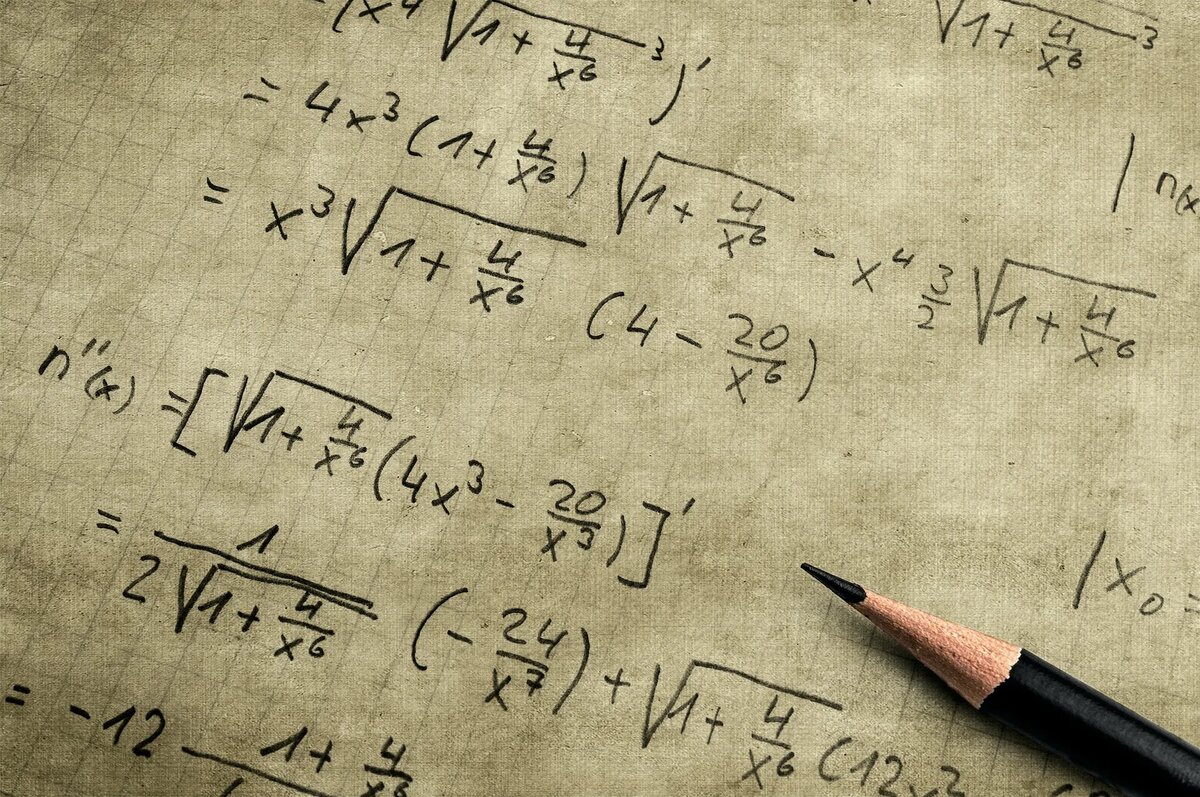 (x⁴ √(1 + 4/x⁶)³)′
√(1 + 4/x⁶)³
= 4x³ (1 + 4/x⁶) √(1 + 4/x⁶) - x⁴ 3/2 √(1 + 4/x⁶)
| n(x
= x³ √(1 + 4/x⁶) (4 - 20/x⁶)
n″(x) = [√(1 + 4/x⁶) (4x³ - 20/x³)]′
= 1/(2√(1 + 4/x⁶)) (-24/x⁷) + √(1 + 4/x⁶) (12x²
| x₀ =
= -12 1 + 4/x⁶